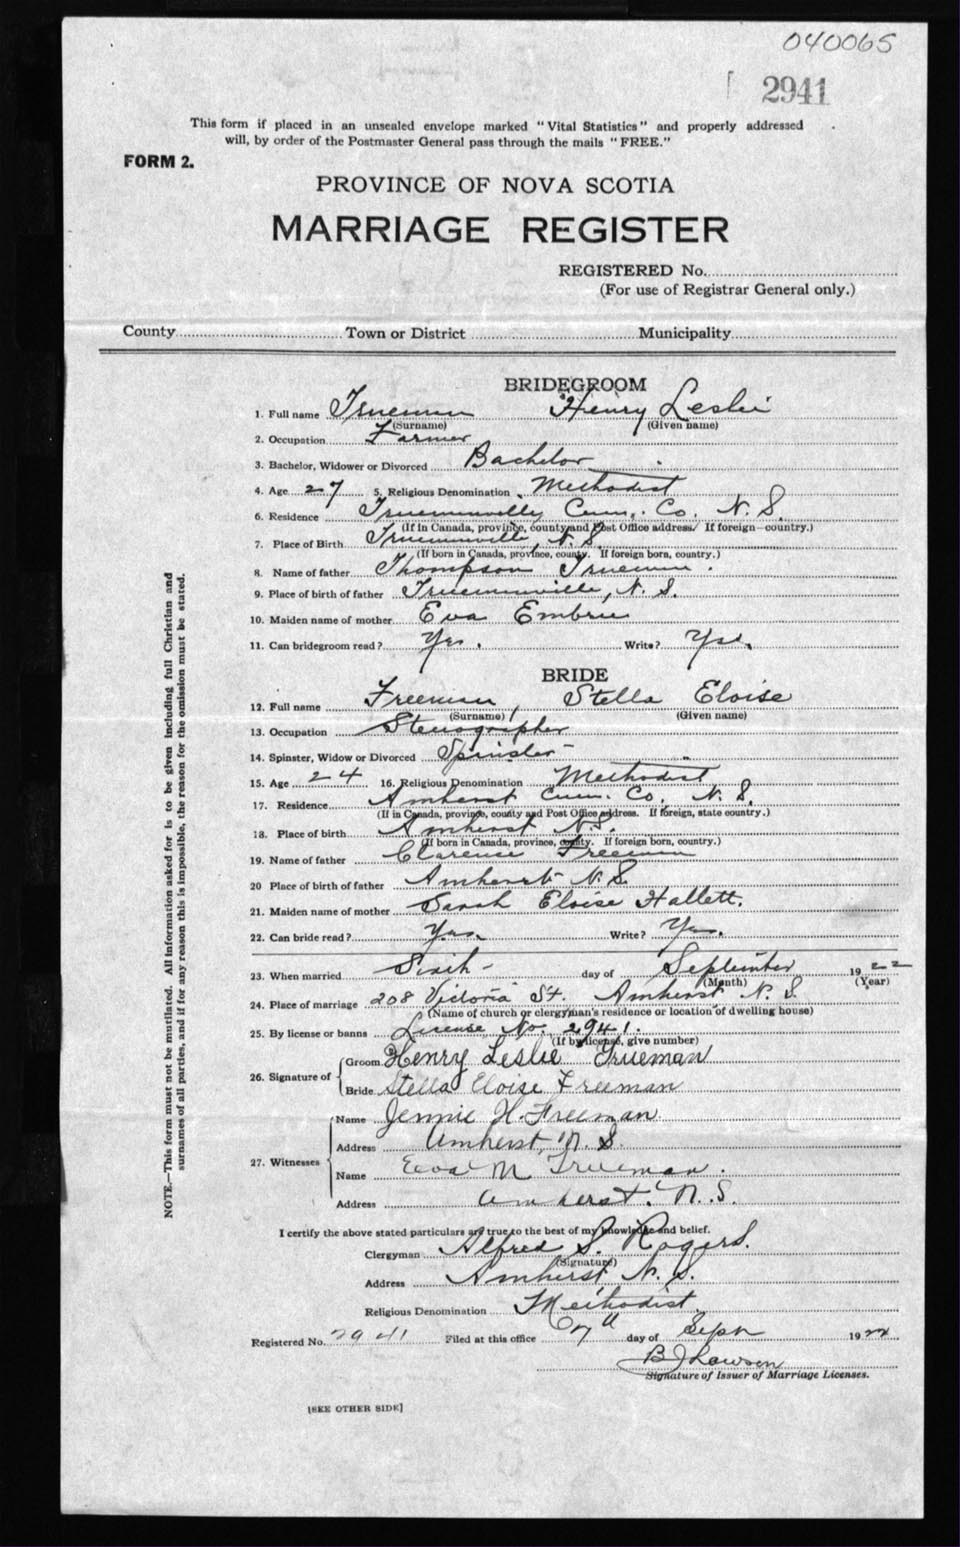 040065
2941
This form if placed in an unsealed envelope marked "Vital Statistics" and properly addressed
will, by order of the Postmaster General pass through the mails "FREE."
FORM 2.
PROVINCE OF NOVA SCOTIA
MARRIAGE REGISTER
REGISTERED No.
(For use of Registrar General only.)
County Town or District Municipality
BRIDEGROOM
1. Full name Trueman Henry Leslie
(Surname) (Given name)
2. Occupation Farmer
3. Bachelor, Widower or Divorced Bachelor
4. Age 27 5. Religious Denomination Methodist
6. Residence Truemanville, Cum. Co. N. S.
(If in Canada, province, county and Post Office address. If foreign—country.)
7. Place of Birth Truemanville, N. S.
(If born in Canada, province, county. If foreign born, country.)
8. Name of father Thompson Trueman.
9. Place of birth of father Truemanville, N. S.
10. Maiden name of mother Eva Embree
11. Can bridegroom read? Yes. Write? Yes.
BRIDE
12. Full name Freeman, Stella Eloise
(Surname) (Given name)
13. Occupation Stenographer
14. Spinster, Widow or Divorced Spinster
15. Age 24 16. Religious Denomination Methodist
17. Residence Amherst Cum. Co. N. S.
(If in Canada, province, county and Post Office address. If foreign, state country.)
18. Place of birth Amherst N.S.
(If born in Canada, province, county. If foreign born, country.)
19. Name of father Clarence Freeman
20 Place of birth of father Amherst N. S.
21. Maiden name of mother Sarah Eloise Hallett.
22. Can bride read? Yes. Write? Yes.
23. When married Sixth day of September 1922
(Month) (Year)
24. Place of marriage 208 Victoria St. Amherst N. S.
(Name of church or clergyman's residence or location of dwelling house)
25. By license or banns License No. 2941.
(If by license, give number)
26. Signature of Groom Henry Leslie Trueman
Bride Stella Eloise Freeman
27. Witnesses Name Jennie H. Freeman
Address Amherst, N. S.
Name Eva M Trueman.
Address Amherst. N. S.
I certify the above stated particulars are true to the best of my knowledge and belief.
Clergyman Alfred S. Rogers.
(Signature)
Address Amherst, N. S.
Religious Denomination Methodist
Registered No. 2941 Filed at this office day of Sept 1922
B J Lawson
Signature of Issuer of Marriage Licenses.
[SEE OTHER SIDE]
NOTE.—This form must not be mutilated. All information asked for is to be given including full Christian and
surnames of all parties, and if for any reason this is impossible, the reason for the omission must be stated.